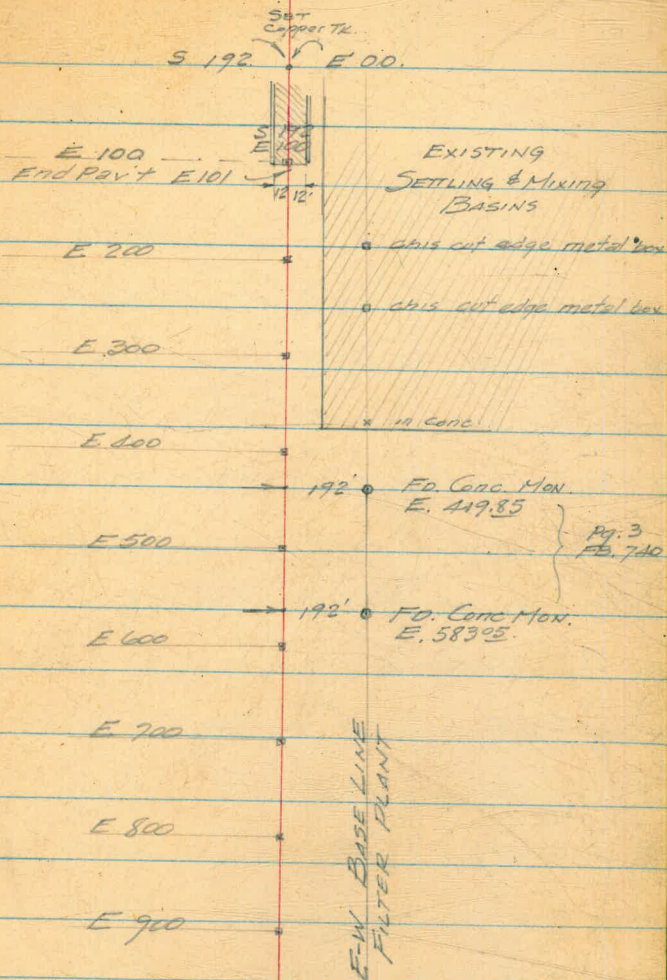 SET
Copper TK.
S 192. E 00.
E 100
End Pav't E101
12 12'
EXISTING
SETTLING & MIXING
BASINS
E 200
chis cut edge metal box
chis cut edge metal box
E 300
in conc
E 400
192' FD. Conc. Mon.
E. 449.85
Pg. 3
FB. 740
E 500
192' FD. Conc Mon.
E. 583.05
E 600
E 700
E 800
E 900
E-W BASE LINE
FILTER PLANT